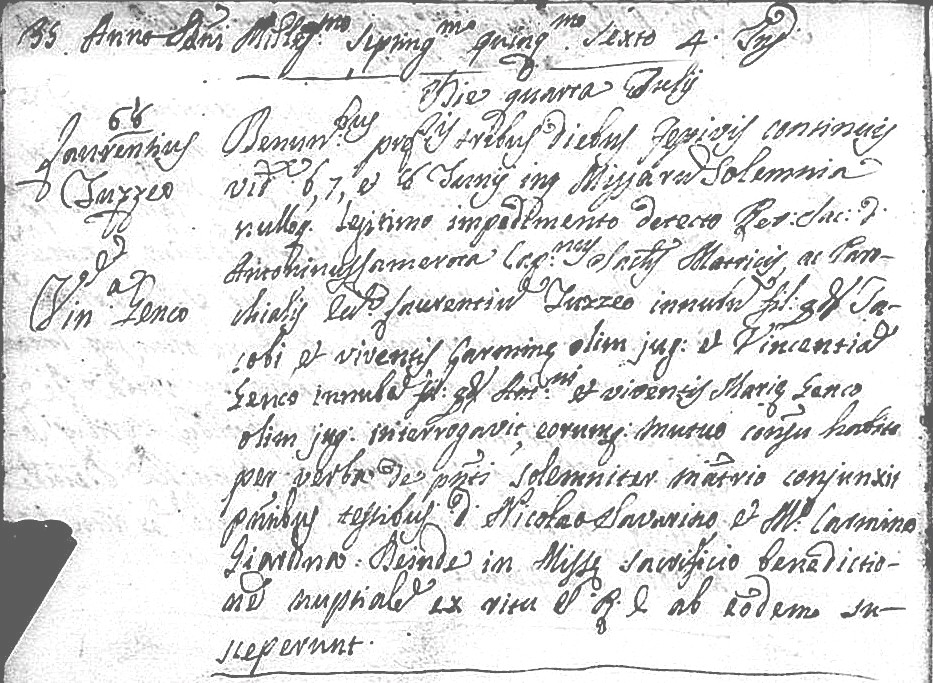 135. Anno Dñi Milles.mo septing.mo quinq.mo sexto 4. Ind.
Die quarta Julij
66
Laurentius
Tuzzeo
et
Vin.a Genco
Denun.bus pres.is tribus diebus festivis continuis
vid. 6, 7, et Junij inter Missarũ Solemnia
nulloq. legitimo impedimento detecto Rev: Sac: D:
Antoninus Camerota Cap.nus Matricis, ac Paro-
chialis Laurentiũ Tuzzeo innubũ fil: qd Ja-
cobi et viventis Carminę olim jug: et Vincentiã
Genco innubã fil: qd Ant.ni et viventis Marię Genco
olim jug. interrogavit, eorumq. mutuo consẽsu habito
per verba de pñti solemniter matrio conjunxit
pñtibus testibus D. Nicolao Savarino et M.ro Carmino
Giardina. Deinde in Missę sacrificio benedictio-
nẽ nuptialẽ ex ritu R. E ab eodem su-
sceperunt.